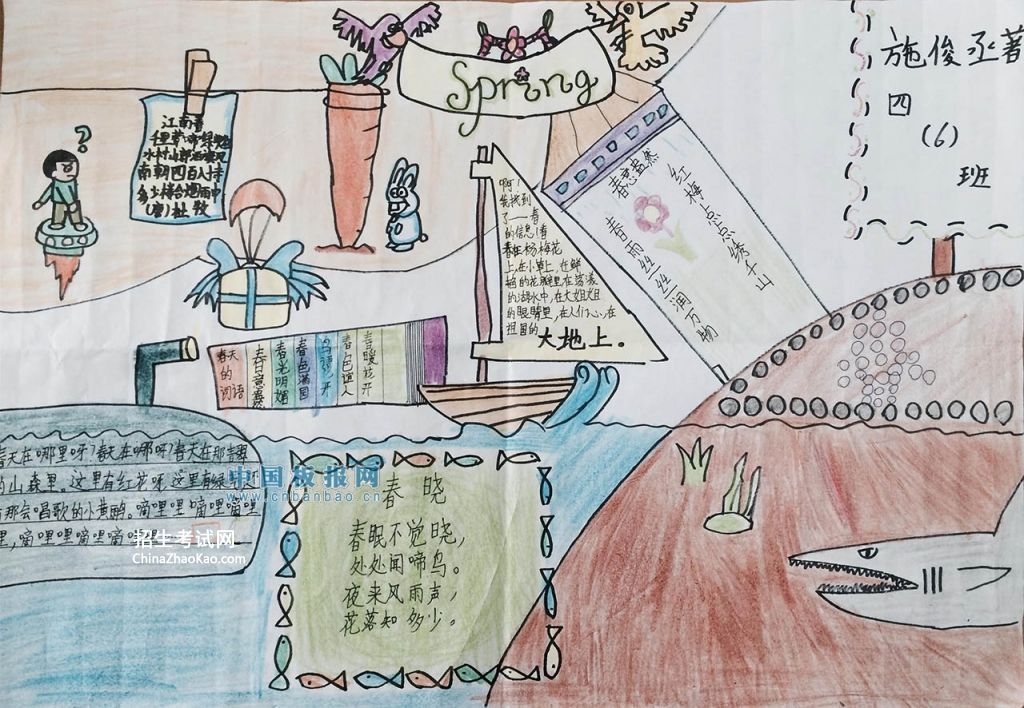 Spring
施俊丞著
四
(6)
班
江南春
千里莺啼绿映红
水村山郭酒旗风
南朝四百八十寺
多少楼台烟雨中
(唐)杜牧
啊!
我找到
了一春
的信息!春
春在杨梅花
上,在小草上,在鲜
的花瓣里在荡漾
的湖水中,在大姐姐
的眼睛里,在人们心,在
祖国的
大地上。
春意盎然
红梅点点绣千山
春雨丝丝润万物
春天
的
词语
春意盎然
春光明媚
春色满园
春色迷人
春暖花开
春天在哪里呀?春天在哪呀?春天在那
的山森里。这里有红花呀这里有绿
那会唱歌的小黄鹂。嘀哩哩嘀哩嘀哩
哩,嘀哩哩嘀哩嘀
春晓
春眠不觉晓,
处处闻啼鸟。
夜来风雨声,
花落知多少。
中国板报网
www.cnbanbao.cn
招生考试网
ChinaZhaoKao.com